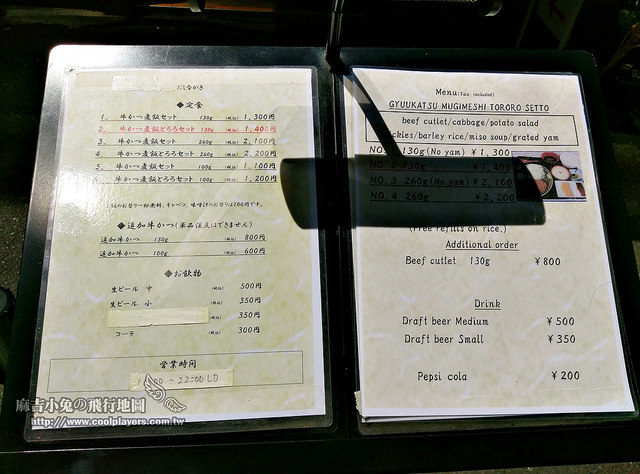 おしながき
◆定食
1. 牛かつ麦飯セット 130g (税込) 1,300円
2. 牛かつ麦飯とろろセット 130g (税込) 1,400円
3. 牛かつ麦飯セット 260g (税込) 2,100円
4. 牛かつ麦飯とろろセット 260g (税込) 2,200円
5. 牛かつ麦飯セット 100g (税込) 1,100円
牛かつ麦飯とろろセット 100g (税込) 1,200円
キャベツ、味噌汁のお替りは100円です。
◆追加牛かつ(単品注文はできません)
追加牛かつ 130g (税込) 800円
追加牛かつ 100g (税込) 600円
◆お飲物
生ビール 中 (税込) 500円
生ビール 小 (税込) 350円
(税込) 350円
コーラ (税込) 300円
営業時間
~ 22:00 LO
Menu(Tax included)
GYUUKATSU MUGIMESHI TORORO SETTO
beef cutlet/cabbage/potato salad
ckles/barley rice/miso soup/grated yam
NO. 130g(No yam) ¥1,300
NO. 2 130g ¥1,400
NO. 3 260g(No yam) ¥2,100
NO. 4 260g ¥2,200
(Free refills on rice.)
Additional order
Beef cutlet 130g ¥800
Drink
Draft beer Medium ¥500
Draft beer Small ¥350
Pepsi cola ¥200
麻吉小兔の飛行地圖
http://www.coolplayers.com.tw